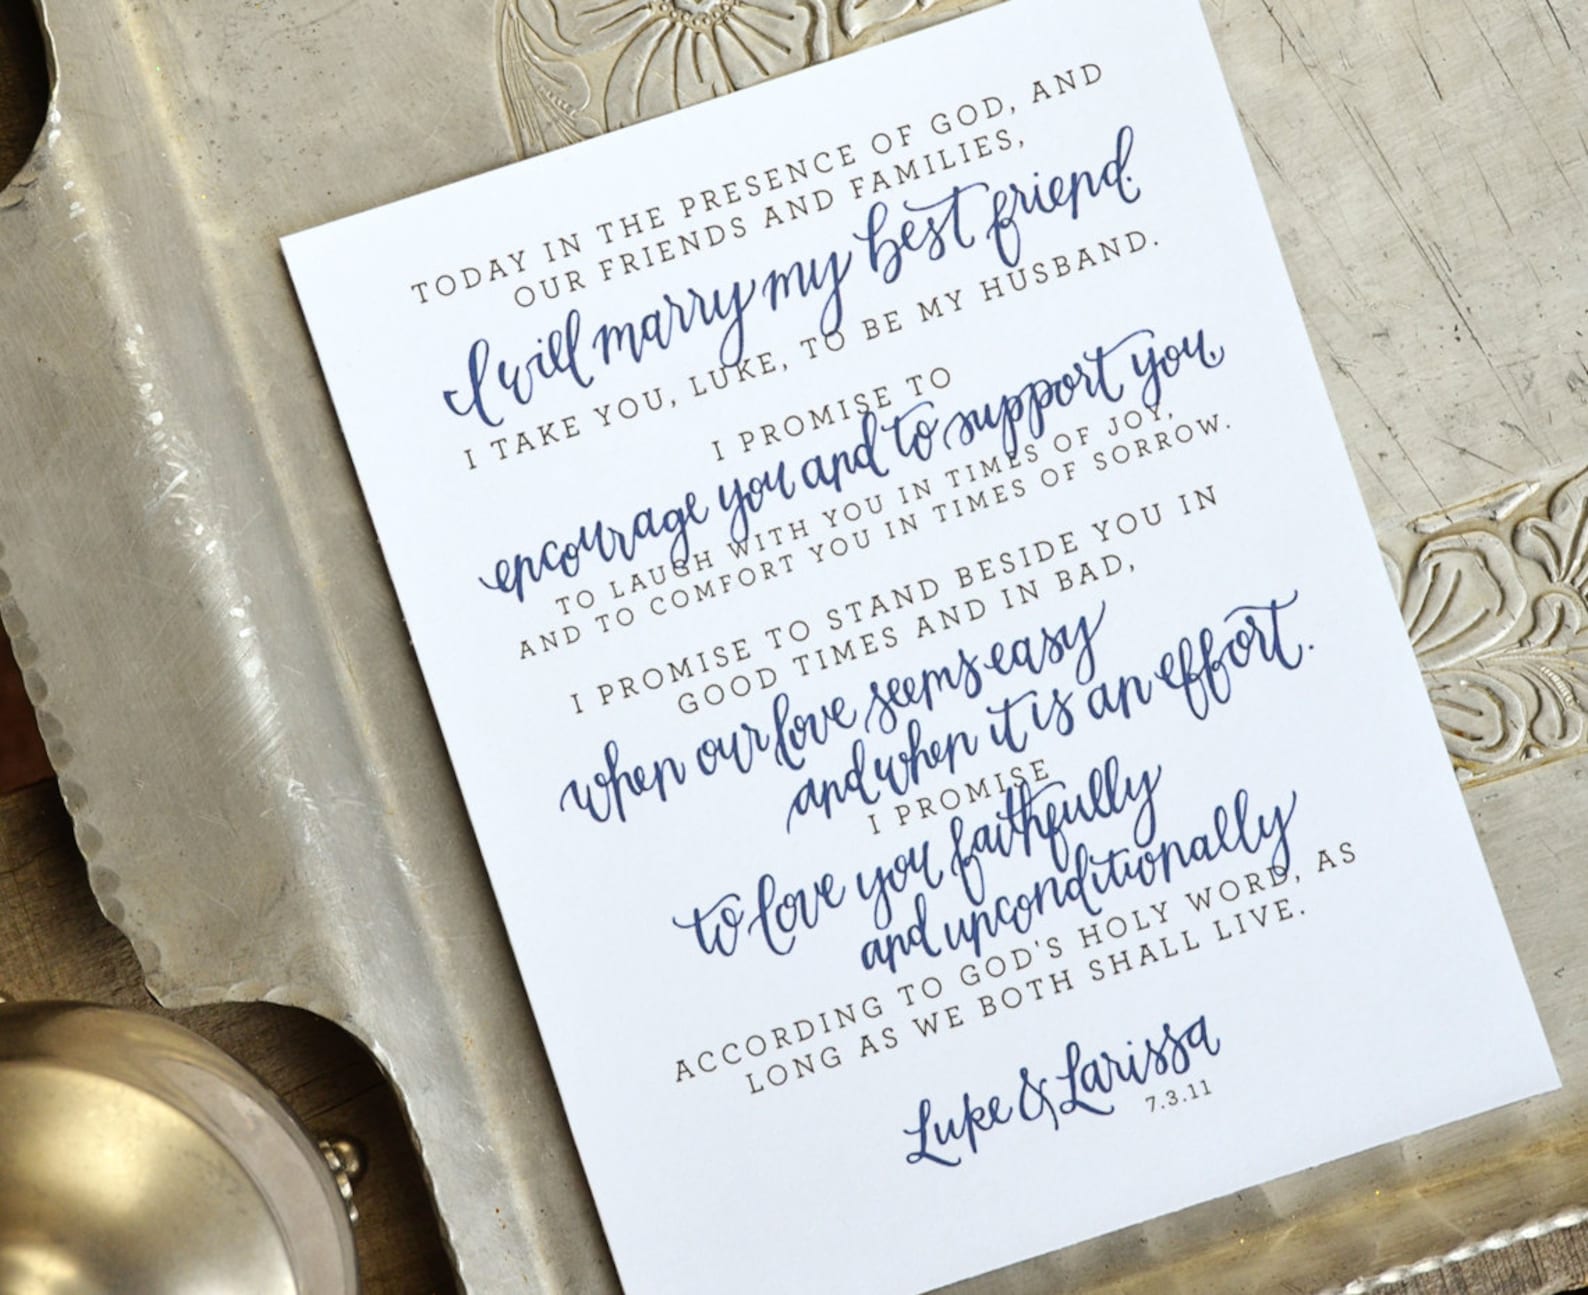 TODAY IN THE PRESENCE OF GOD, AND
OUR FRIENDS AND FAMILIES,
I will marry my best friend.
I TAKE YOU, LUKE, TO BE MY HUSBAND.
I PROMISE TO
encourage you and to support you.
TO LAUGH WITH YOU IN TIMES OF JOY,
AND TO COMFORT YOU IN TIMES OF SORROW.
I PROMISE TO STAND BESIDE YOU IN
GOOD TIMES AND IN BAD,
when our love seems easy
and when it is an effort.
I PROMISE
to love you faithfully
and unconditionally
ACCORDING TO GOD'S HOLY WORD, AS
LONG AS WE BOTH SHALL LIVE.
Luke & Larissa
7.3.11